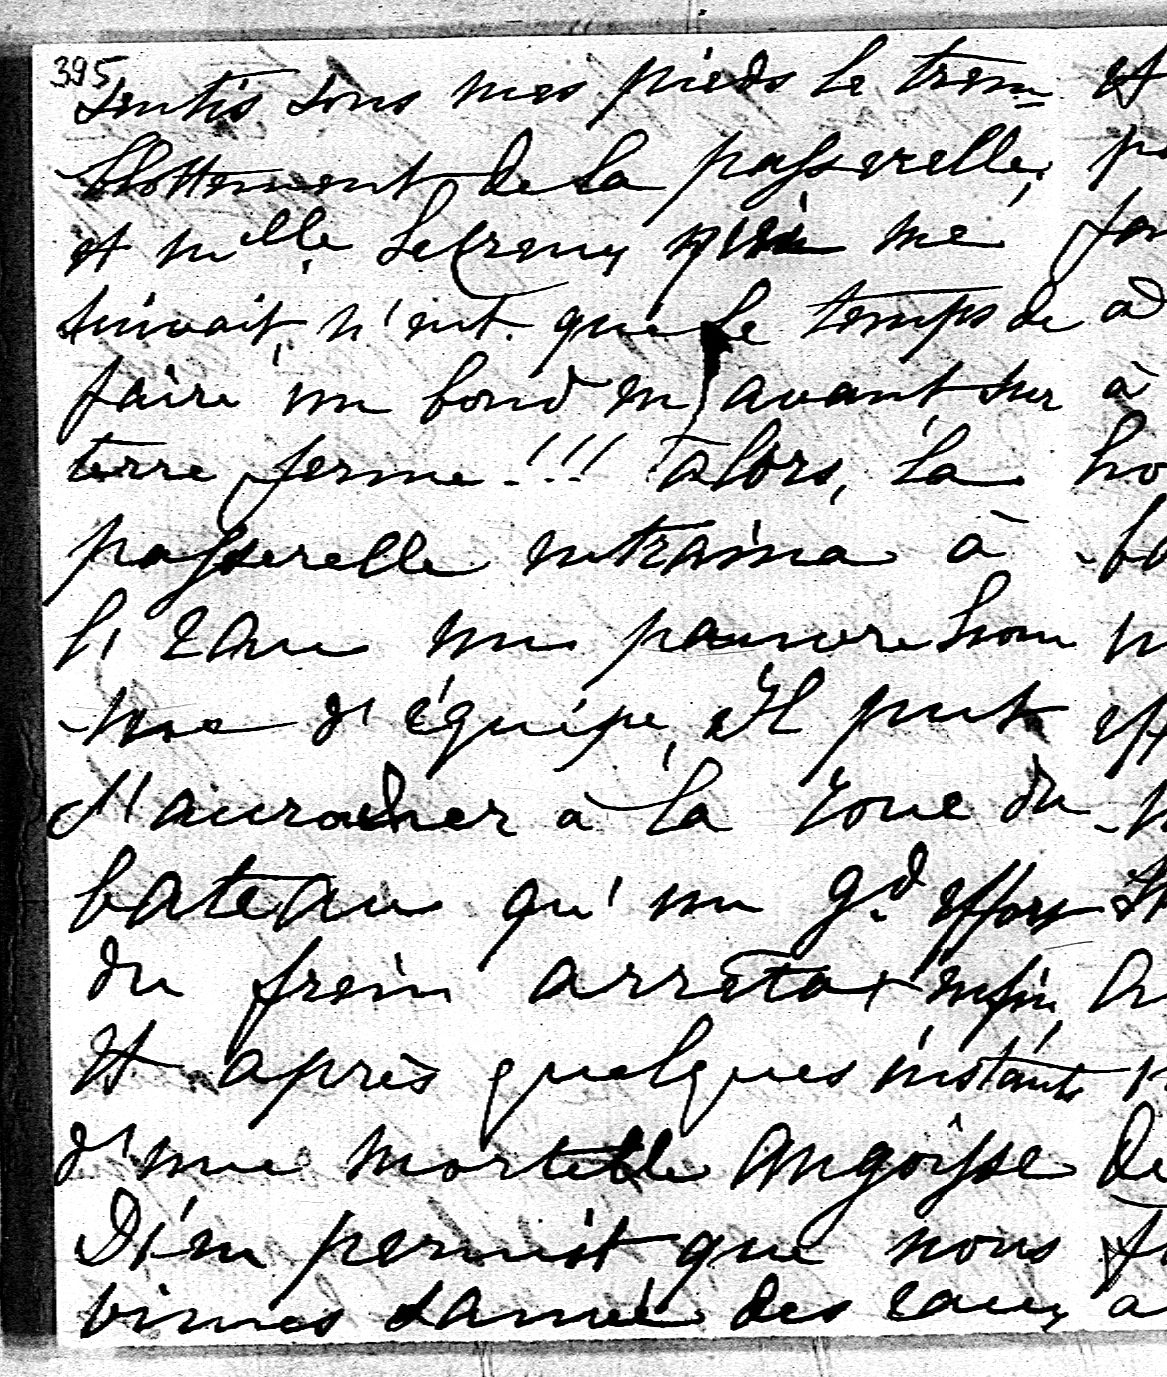 395
sentis sous mes pieds le trem=
blottement de la passerelle,
et Melle qui me
suivait, n'eut que le temps de
faire un bond en avant sur
terre ferme!!! alors, la
passerelle entraina à
l'eau un pauvre hom
me d'équipe, Il put
s'accrocher à la roue du
bateau qu'un gd effort
du frein arrêta enfin
et après quelques instants
d'une mortelle angoisse
Dieu permit que nous
vimes sauvé des eaux